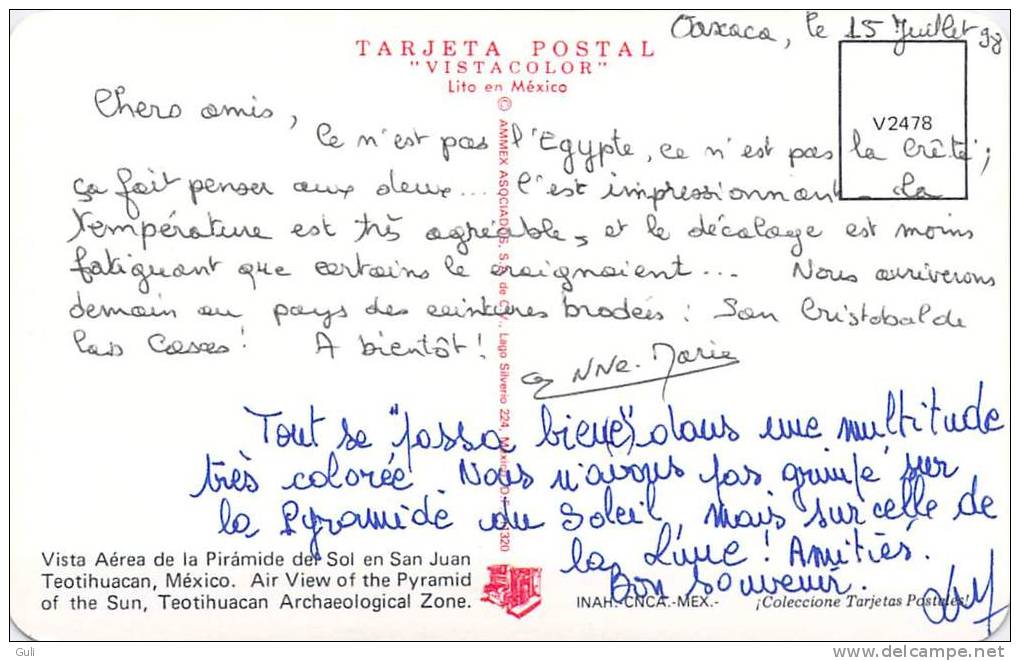 Oaxaca, le 15 Juillet 98
TARJETA POSTAL
"VISTACOLOR"
Lito en México
V2478
© AMMEX ASOCIADOS, S.A. de C.V., Lago Silverio 224, México
Chers amis,
Ce n'est pas l'Egypte, ce n'est pas la Crête,
ça fait penser aux deux... C'est impressionnant. La
température est très agréable, et le décalage est moins
fatiguant que certains le craignaient... Nous arriverons
demain au pays des ceintures brodées : San Cristobal de
las Casas! A bientôt!
Anne-Marie
Tout se "passa bien(e)" dans une multitude
très colorée. Nous n'avons pas grimpé sur
la Pyramide du Soleil, mais sur celle de
la Lune! Amitiés.
Bon souvenir.
Vista Aérea de la Pirámide del Sol en San Juan
Teotihuacan, México. Air View of the Pyramid
of the Sun, Teotihuacan Archaeological Zone.
INAH.-CNCA.-MEX.- ¡Coleccione Tarjetas Postales!
Guli
www.delcampe.net